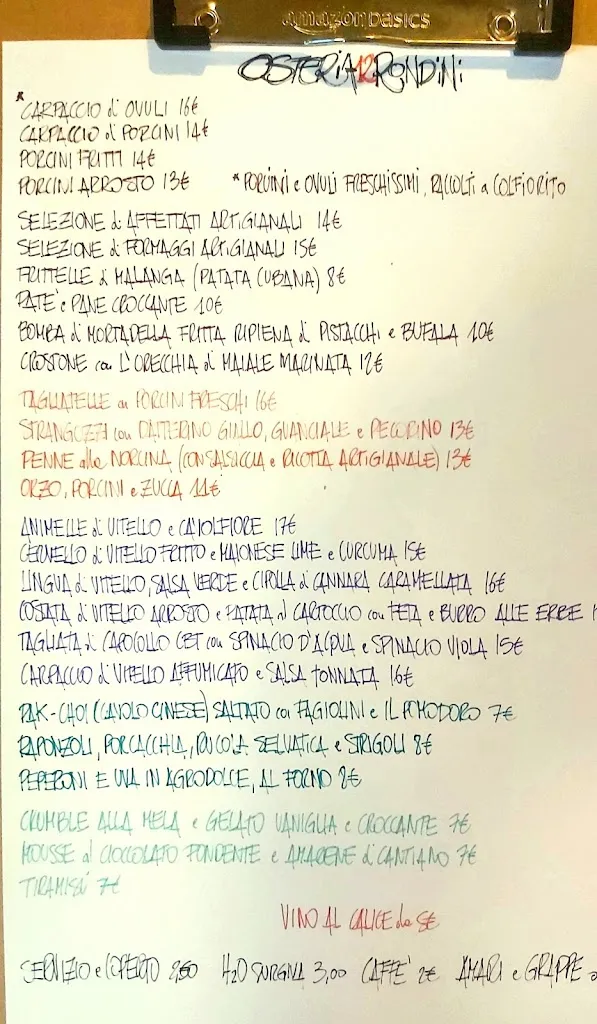 amazonbasics
OSTERIA 12 RONDINI
*CARPACCIO di OVULI 16€
CARPACCIO di PORCINI 14€
PORCINI FRITTI 14€
PORCINI ARROSTO 13€ *PORCINI e OVULI FRESCHISSIMI, RACCOLTI a COLFIORITO
SELEZIONE di AFFETTATI ARTIGIANALI 14€
SELEZIONE di FORMAGGI ARTIGIANALI 15€
FRITTELLE di MALANGA (PATATA CUBANA) 8€
PATE' e PANE CROCCANTE 10€
BOMBA di MORTADELLA FRITTA RIPIENA di PISTACCHI e BUFALA 10€
CROSTONE con L'ORECCHIA di MAIALE MARINATA 12€
TAGLIATELLE ai PORCINI FRESCHI 16€
STRANGOZZI con DATTERINO GIALLO, GUANCIALE e PECORINO 13€
PENNE alla NORCINA (CON SALSICCIA e RICOTTA ARTIGIANALE) 13€
ORZO, PORCINI e ZUCCA 11€
ANIMELLE di VITELLO e CAVOLFIORE 17€
CERVELLO di VITELLO FRITTO e MAIONESE LIME e CURCUMA 15€
LINGUA di VITELLO, SALSA VERDE e CIPOLLA di CANNARA CARAMELLATA 16€
COSTATA di VITELLO ARROSTO e PATATA al CARTOCCIO con FETA e BURRO ALLE ERBE
TAGLIATA di CAPOCOLLO CBT con SPINACIO D'ACQUA e SPINACIO VIOLA 15€
CARPACCIO di VITELLO AFFUMICATO e SALSA TONNATA 16€
PAK-CHOI (CAVOLO CINESE) SALTATO con FAGIOLINI e IL POMODORO 7€
RAPONZOLI, PORCACCHIA, RUCOLA SELVATICA e STRIGOLI 8€
PEPERONI E UVA IN AGRODOLCE, AL FORNO 8€
CRUMBLE ALLA MELA e GELATO VANIGLIA e CROCCANTE 7€
MOUSSE al CIOCCOLATO FONDENTE e AMARENE di CANTIANO 7€
TIRAMISÙ 7€
VINO AL CALICE da 5€
SERVIZIO e COPERTO 2,50 H2O SURGIVA 3,00 CAFFE' 2€ AMARI e GRAPPE